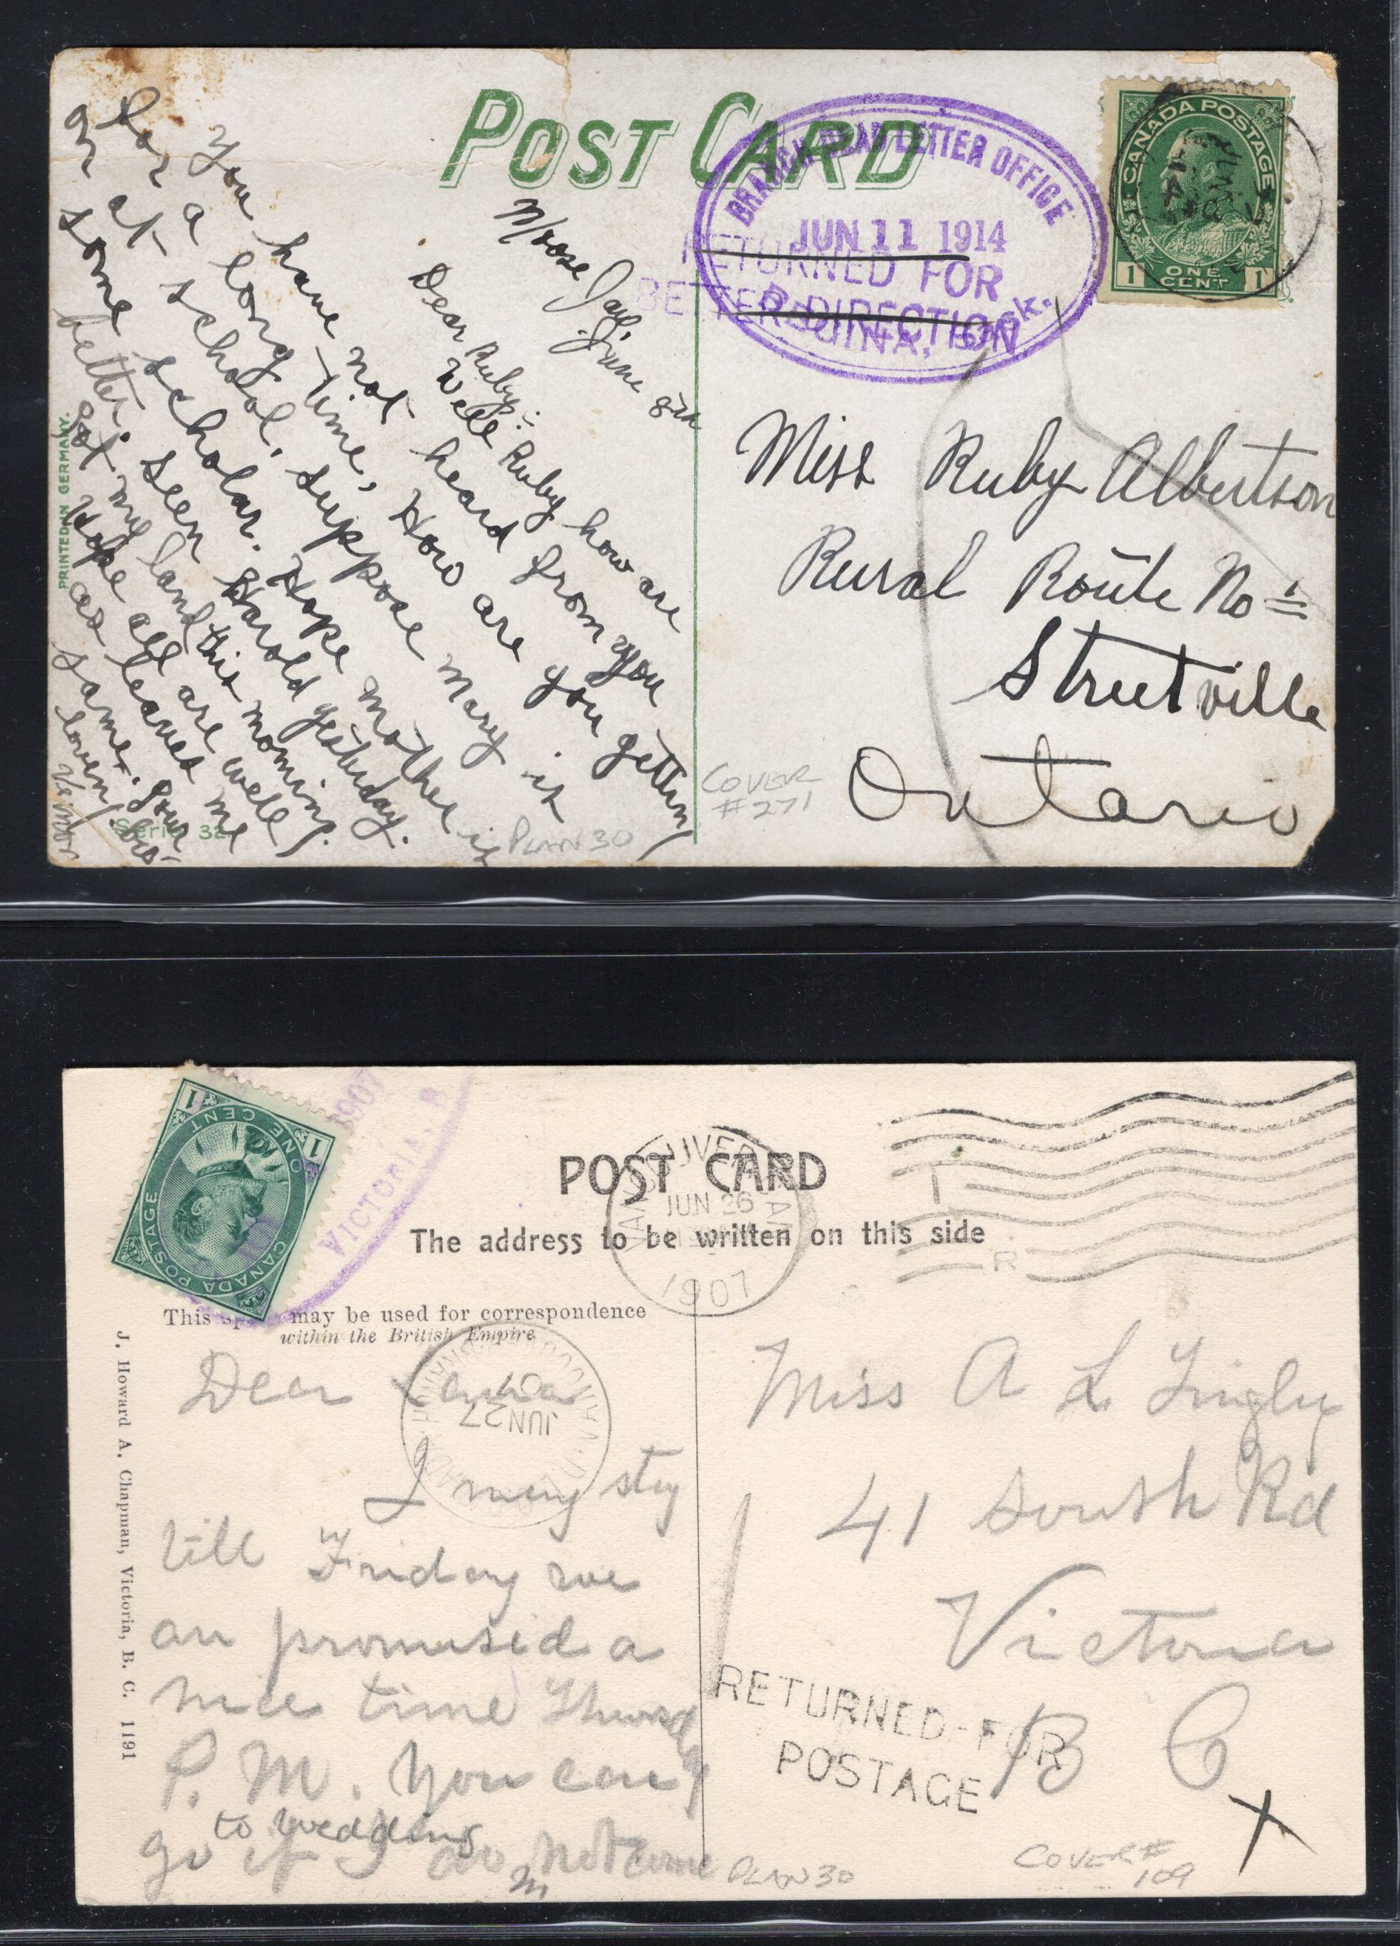 POST CARD
BRANCH DEAD LETTER OFFICE
JUN 11 1914
RETURNED FOR
BETTER DIRECTION
REGINA, SASK.
CANADA POSTAGE
1 ONE CENT 1
Moose Jaw,
June 8th
Dear Ruby:-
Well Ruby how are
you have not heard from you
for a long time, How are you getting
on at school, suppose Mary is
some scholar. Hope mother is
better, seen Harold yesterday.
got my land this morning.
Hope all are well
as leaves me
same. your
loving bro-
Vernon
PRINTED IN GERMANY.
Serie 32
PLAN 30
COVER
#271
Miss Ruby Albertson
Rural Route No 1
Streetville
Ontario
1 ONE CENT 1
CANADA POSTAGE
1907
VICTORIA, B
POST CARD
The address to be written on this side
VANCOUVER CAN
JUN 26
1907
This space may be used for correspondence
within the British Empire
JUN 27
07
J. Howard A. Chapman, Victoria, B. C. 1191
Dear
I may stay
till Friday we
are promised a
nice time Thursday
P. M. You can
to wedding
go if I do not come
M
Miss A L
41 South Rd
Victoria
B C
RETURNED-FOR
POSTAGE
X
PLAN 30
COVER #
109